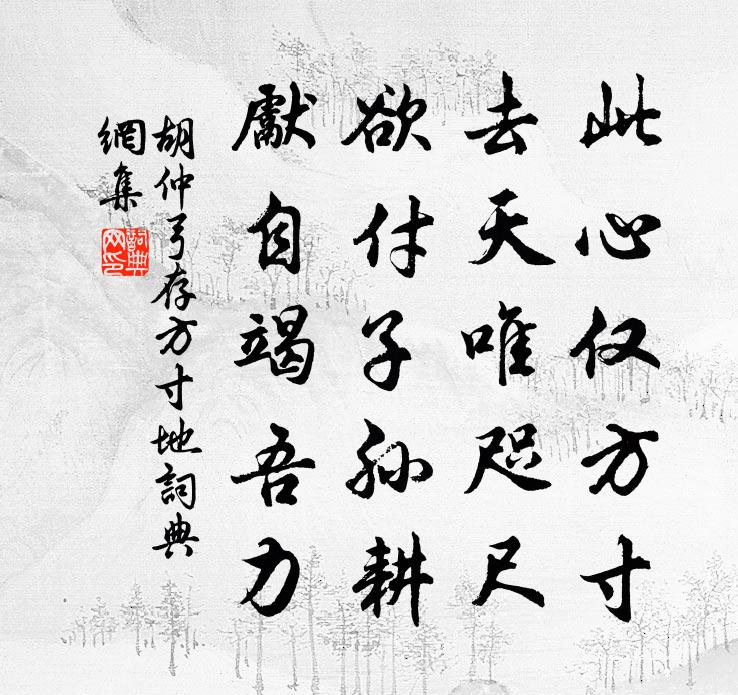 此心仅方寸
去天唯咫尺
欲付子孙耕
獻自竭吾力
胡仲弓存方寸地詞典
網集
詞典網印